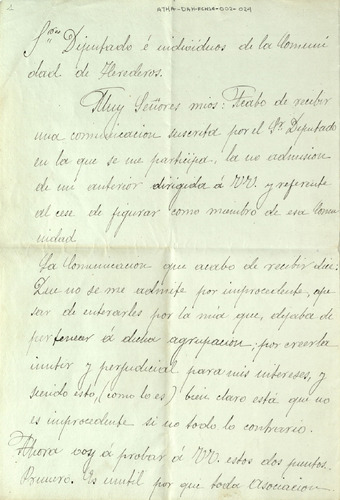 2
ATHA-DAH-FCHLO-002-024
Sres Diputado é individuos de la Comuni
dad de Herederos.
Muy Señores mios: Acabo de recibir
una comunicacion suscrita por el Sr Diputado
en la que se me participa, la no admision
de mi anterior dirigida á VV. y referente
al cese de figurar como miembro de esa Comu
nidad
La Comunicacion que acabo de recibir dice:
Que no se me admite por improcedente, ape
sar de enterarles por la mia que, dejaba de
pertenecer á dicha agrupacion; por creerla
inutil y perjudicial para mis intereses, y
siendo esto, (como lo es) bien claro está que no
es improcedente si no todo lo contrario.
Ahora voy á probar á VV. estos dos puntos.
Primero. Es inutil por que toda Asociacion